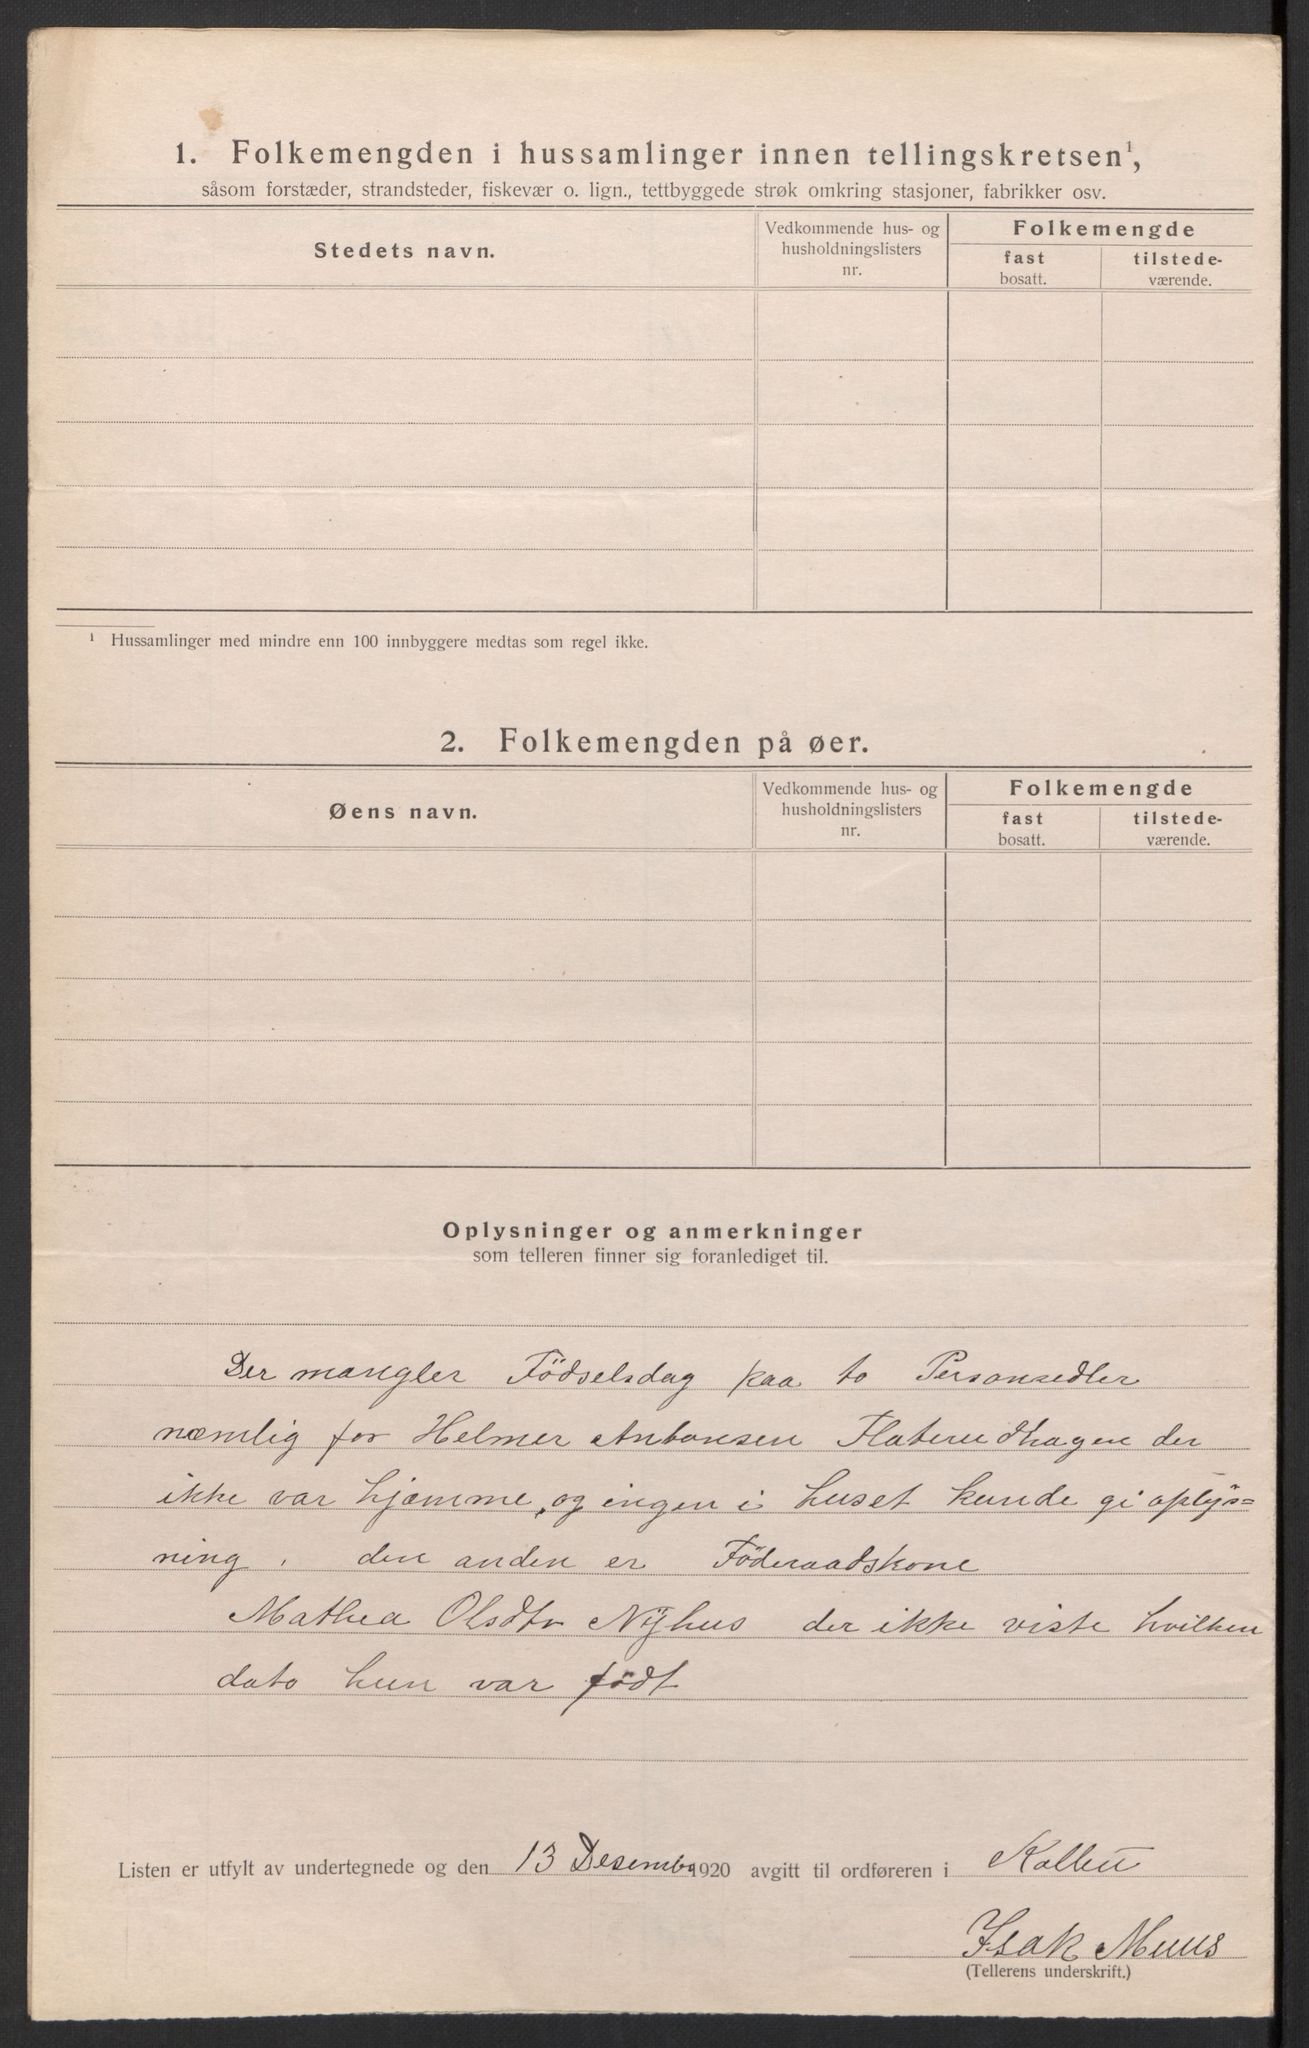 1. Folkemengden i hussamlinger innen tellingskretsen¹,
såsom forstæder, strandsteder, fiskevær o. lign., tettbyggede strøk omkring stasjoner, fabrikker osv.
Stedets navn.
Vedkommende hus- og
husholdningslisters
nr.
Folkemengde
fast
bosatt.
tilstede-
værende.
¹ Hussamlinger med mindre enn 100 innbyggere medtas som regel ikke.
2. Folkemengden på øer.
Øens navn.
Vedkommende hus- og
husholdningslisters
nr.
Folkemengde
fast
bosatt.
tilstede-
værende.
Oplysninger og anmerkninger
som telleren finner sig foranlediget til.
Der mangler Födselsdag paa to Personsedler
næmlig for Helmer Antonsen Flaterudhagen der
ikke var hjæmme, og ingen i huset kunde gi oplys=
ning. den anden er Föderaadskone
Mathea Olsdtr Nÿhus der ikke viste hvilken
dato hun var födt
Listen er utfylt av undertegnede og den 13 Desember 1920 avgitt til ordføreren i Kolbu
Isak Muus
(Tellerens underskrift.)